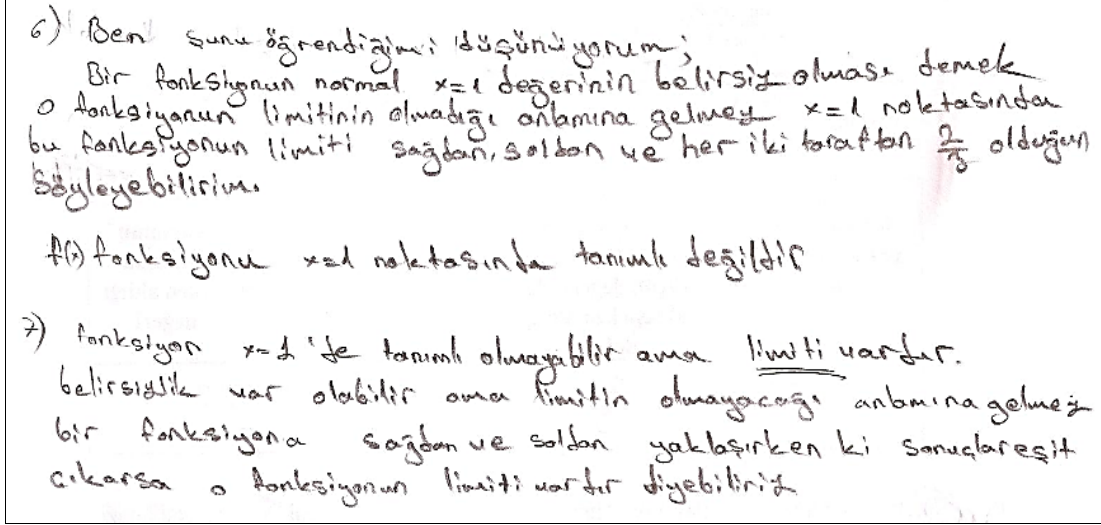 6) Ben şunu öğrendiğimi düşünüyorum;
Bir fonksiyonun normal x=1 değerinin belirsiz olması demek
o fonksiyonun limitinin olmadığı anlamına gelmez x=1 noktasında
bu fonksiyonun limiti sağdan, soldan ve her iki taraftan 2/3 olduğun
söyleyebilirim.
f(x) fonksiyonu x=1 noktasında tanımlı değildir
7) fonksiyon x=1 'de tanımlı olmayabilir ama limiti vardır.
belirsizlik var olabilir ama limitin olmayacağı anlamına gelmez
bir fonksiyona sağdan ve soldan yaklaşırken ki sonuçlar eşit
çıkarsa o fonksiyonun limiti vardır diyebiliriz